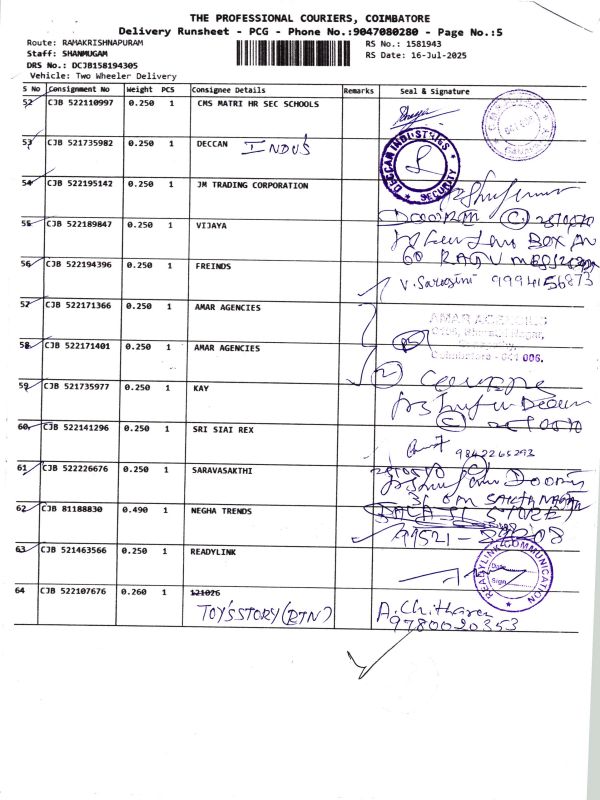 THE PROFESSIONAL COURIERS, COIMBATORE
Delivery Runsheet - PCG - Phone No.:9047080280 - Page No.:5
Route: RAMAKRISHNAPURAM RS No.: 1581943
Staff: SHANMUGAM RS Date: 16-Jul-2025
DRS No.: DCJB158194305
Vehicle: Two Wheeler Delivery
S No Consignment No Weight PCS Consignee Details Remarks Seal & Signature
52 CJB 522110997 0.250 1 CMS MATRI HR SEC SCHOOLS
53 CJB 521735982 0.250 1 DECCAN INDUS
DECCAN INDUSTRIES
SECURITY
54 CJB 522195142 0.250 1 JM TRADING CORPORATION
55 CJB 522189847 0.250 1 VIJAYA
BOX
60
56 CJB 522194396 0.250 1 FREINDS
V. Sarojini 9994156873
57 CJB 522171366 0.250 1 AMAR AGENCIES
AMAR AGENCIES
Coimbatore - 641 006.
58 CJB 522171401 0.250 1 AMAR AGENCIES
59 CJB 521735977 0.250 1 KAY
60 CJB 522141296 0.250 1 SRI SIAI REX
9842265293
61 CJB 522226676 0.250 1 SARAVASAKTHI
62 CJB 81188830 0.490 1 NEGHA TRENDS
63 CJB 521463566 0.250 1 READYLINK
READYLINK COMMUNICATION
Date
Sign
64 CJB 522107676 0.260 1 121026
TOY'SSTORY (RTN) A. Chithara
9780020353